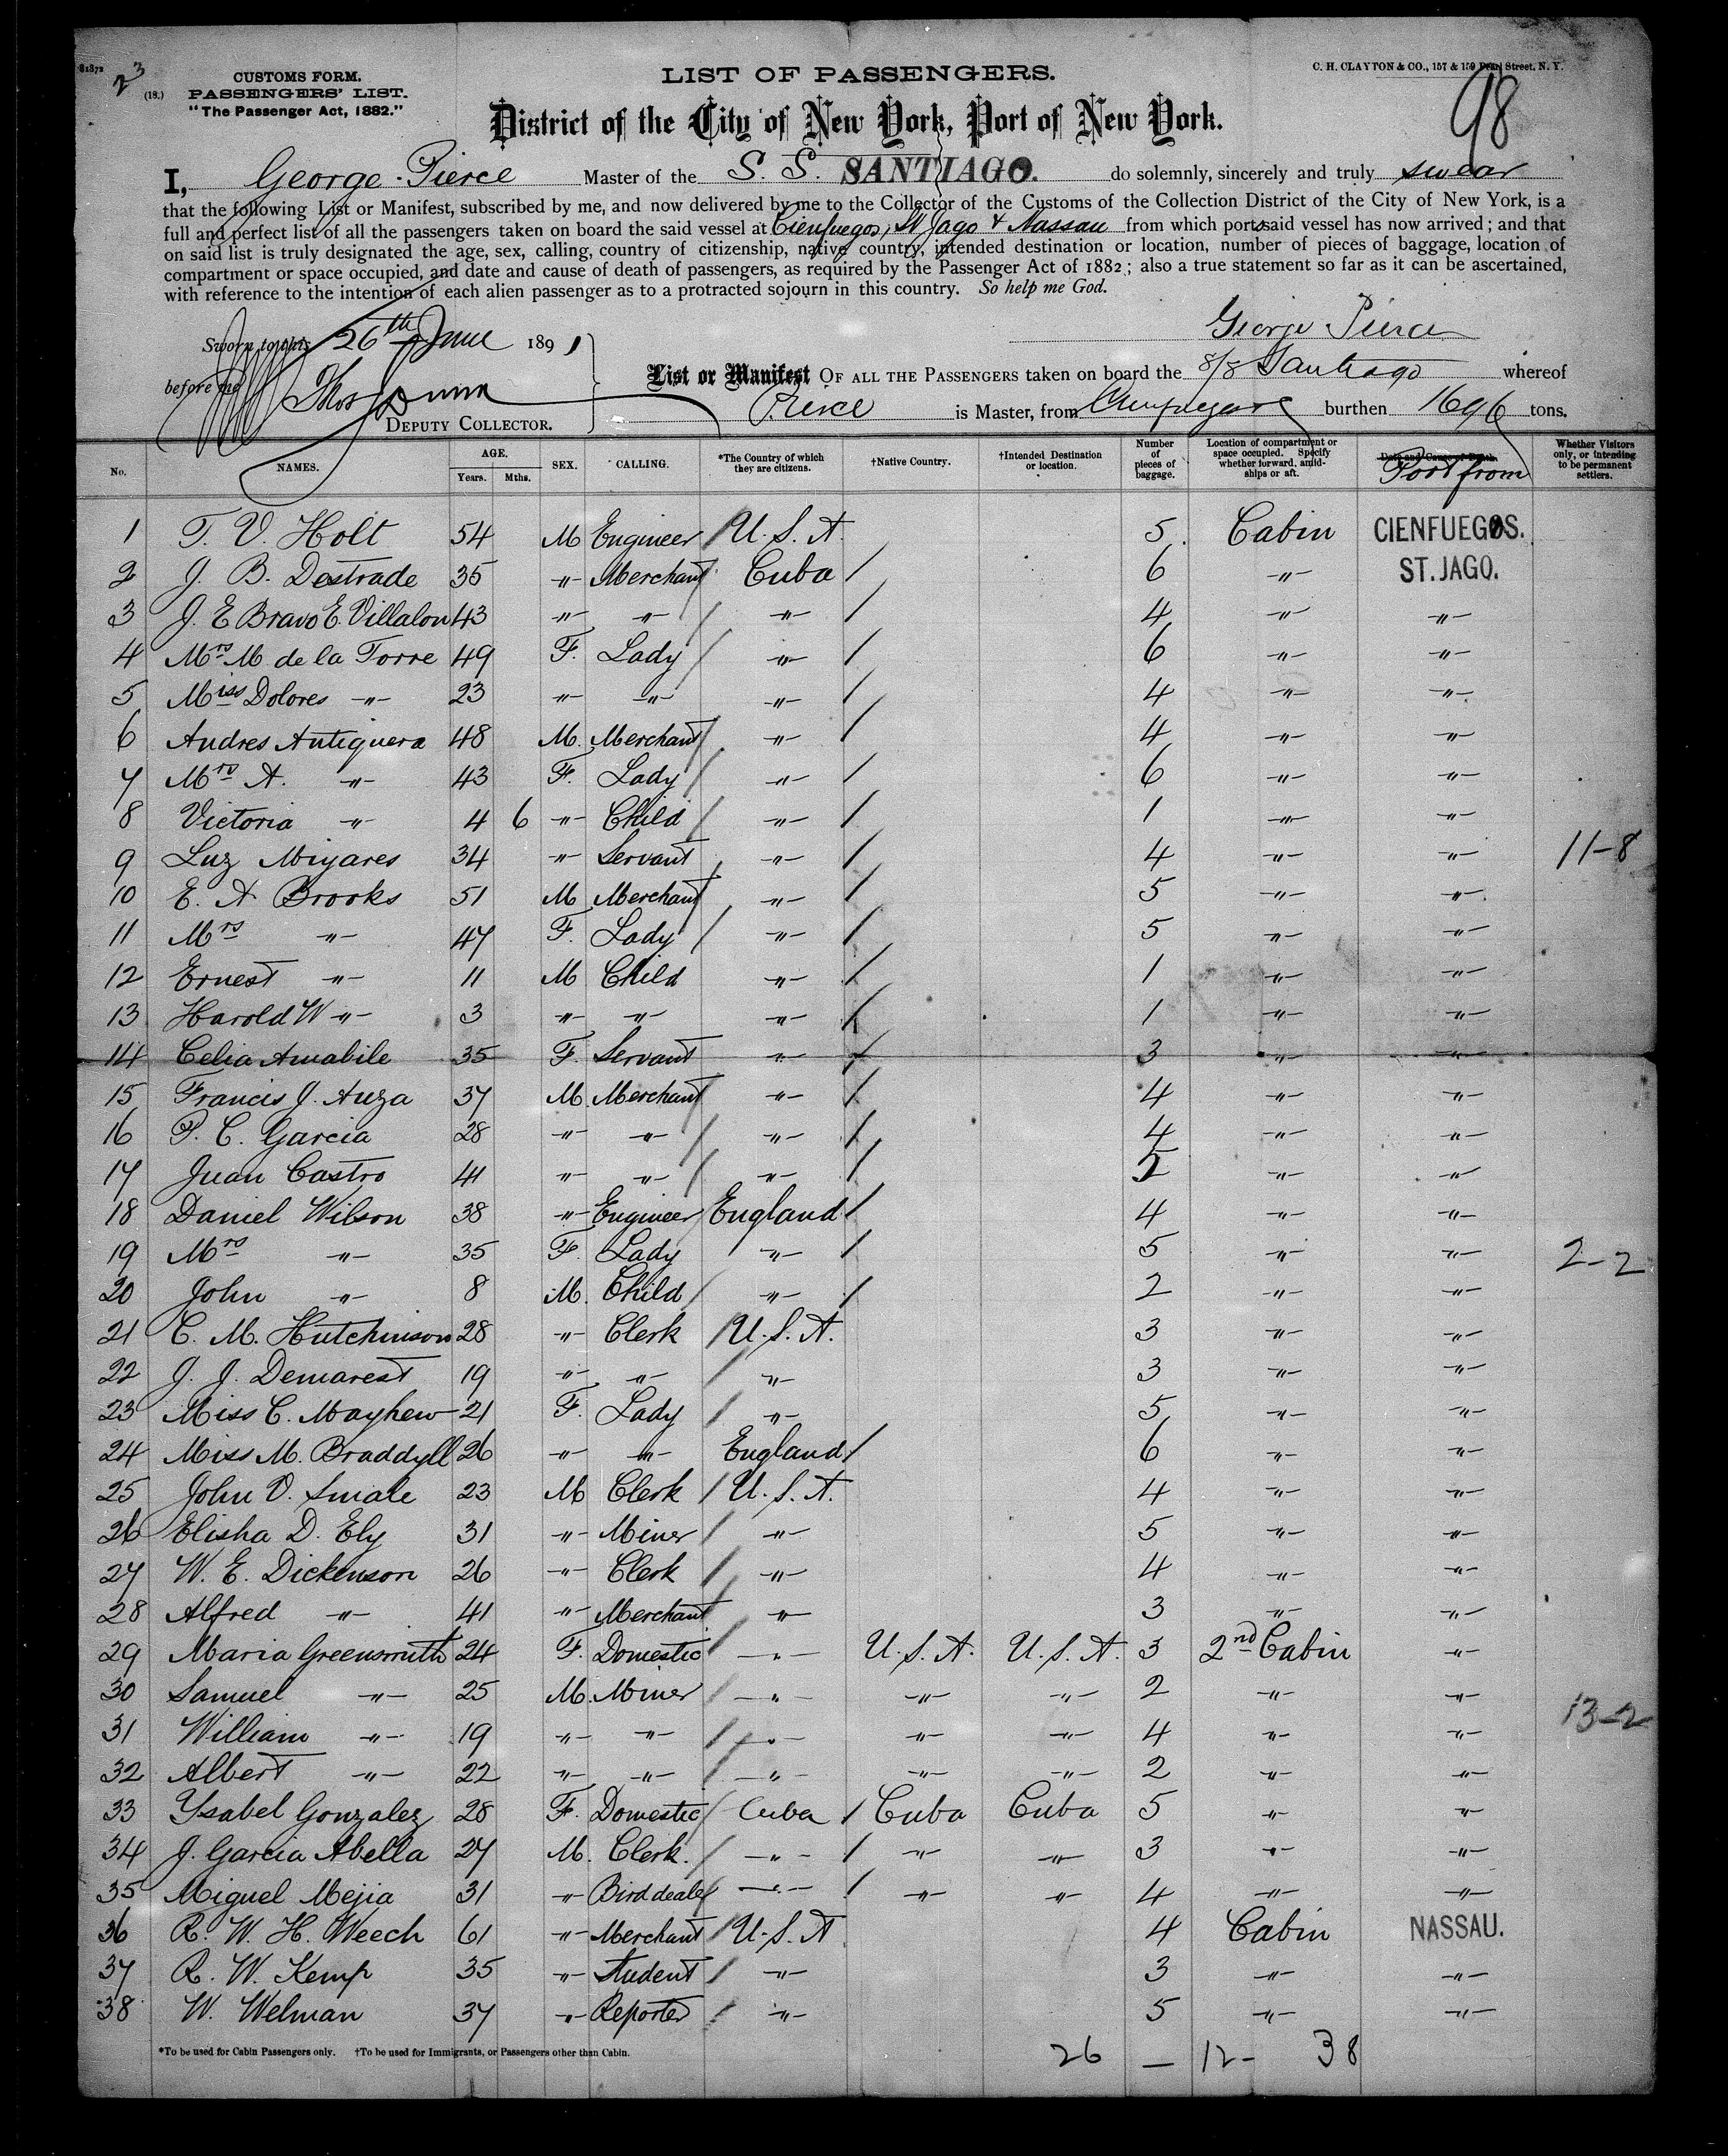 81872
23
(18.)
CUSTOMS FORM.
PASSENGERS' LIST.
"The Passenger Act, 1882."
LIST OF PASSENGERS.
C. H. CLAYTON & CO., 157 & 159 Pearl Street, N. Y.
98
District of the City of New York, Port of New York.
I, George Pierce Master of the S. S. SANTIAGO. do solemnly, sincerely and truly swear
that the following List or Manifest, subscribed by me, and now delivered by me to the Collector of the Customs of the Collection District of the City of New York, is a
full and perfect list of all the passengers taken on board the said vessel at Cienfuegos, St Jago & Nassau from which ports said vessel has now arrived; and that
on said list is truly designated the age, sex, calling, country of citizenship, native country, intended destination or location, number of pieces of baggage, location of
compartment or space occupied, and date and cause of death of passengers, as required by the Passenger Act of 1882; also a true statement so far as it can be ascertained,
with reference to the intention of each alien passenger as to a protracted sojourn in this country. So help me God.
Sworn to this 26th June 1891
George Pierce
before me Thos Dunn
DEPUTY COLLECTOR.
List or Manifest OF ALL THE PASSENGERS taken on board the S/S Santiago whereof
Pierce is Master, from Cienfuegos burthen 1696 tons.
No. NAMES. AGE. Years. Mths. SEX. CALLING. *The Country of which they are citizens. †Native Country. †Intended Destination or location. Number of pieces of baggage. Location of compartment or space occupied. Specify whether forward, amidships or aft. Date and Cause of Death. Port from Whether Visitors only, or intending to be permanent settlers.
1 T. V. Holt 54 M Engineer U. S. A. 5 Cabin CIENFUEGOS.
2 J. B. Destrade 35 " Merchant Cuba 6 " ST. JAGO.
3 J. E Bravo E. Villalon 43 " " " 4 " "
4 Mrs M. de la Torre 49 F. Lady " 6 " "
5 Miss Dolores " 23 " " " 4 " "
6 Andres Antiguera 48 M. Merchant " 4 " "
7 Mrs A. " 43 F. Lady " 6 " "
8 Victoria " 4 6 " Child " 1 " "
9 Luz Miyares 34 " Servant " 4 " " 11-8
10 E. A Brooks 51 M Merchant " 5 " "
11 Mrs " 47 F. Lady " 5 " "
12 Ernest " 11 M Child " 1 " "
13 Harold W " 3 " " " 1 " "
14 Celia Amabile 35 F. Servant " 3 " "
15 Francis J. Auza 37 M. Merchant " 4 " "
16 P. C. Garcia 28 " " " 4 " "
17 Juan Castro 41 " " " 5 " "
18 Daniel Wilson 38 " Engineer England 4 " "
19 Mrs " 35 F. Lady " 5 " " 2-2
20 John " 8 M. Child " 2 " "
21 C. M. Hutchinson 28 " Clerk U. S. A. 3 " "
22 J. J. Demarest 19 " " " 3 " "
23 Miss C. Mayhew 21 F. Lady " 5 " "
24 Miss M. Braddyll 26 " " England 6 " "
25 John V. Smale 23 M Clerk U. S. A. 4 " "
26 Elisha D. Ely 31 " Miner " 5 " "
27 W. E. Dickenson 26 " Clerk " 4 " "
28 Alfred " 41 " Merchant " 3 " "
29 Maria Greensmith 24 F. Domestic " U. S. A. U. S. A. 3 2nd Cabin "
30 Samuel " 25 M. Miner " " " 2 " " 13-2
31 William " 19 " " " " " 4 " "
32 Albert " 22 " " " " " 2 " "
33 Ysabel Gonzalez 28 F. Domestic Cuba Cuba Cuba 5 " "
34 J. Garcia Abella 27 M. Clerk. " " " 3 " "
35 Miguel Mejia 31 " Bird dealer " " " 4 " "
36 R. W. H. Weech 61 " Merchant U. S. A 4 Cabin NASSAU.
37 R. W. Kemp 35 " Student " 3 " "
38 W. Welman 37 " Reporter " 5 " "
*To be used for Cabin Passengers only. †To be used for Immigrants, or Passengers other than Cabin.
26 — 12 - 38